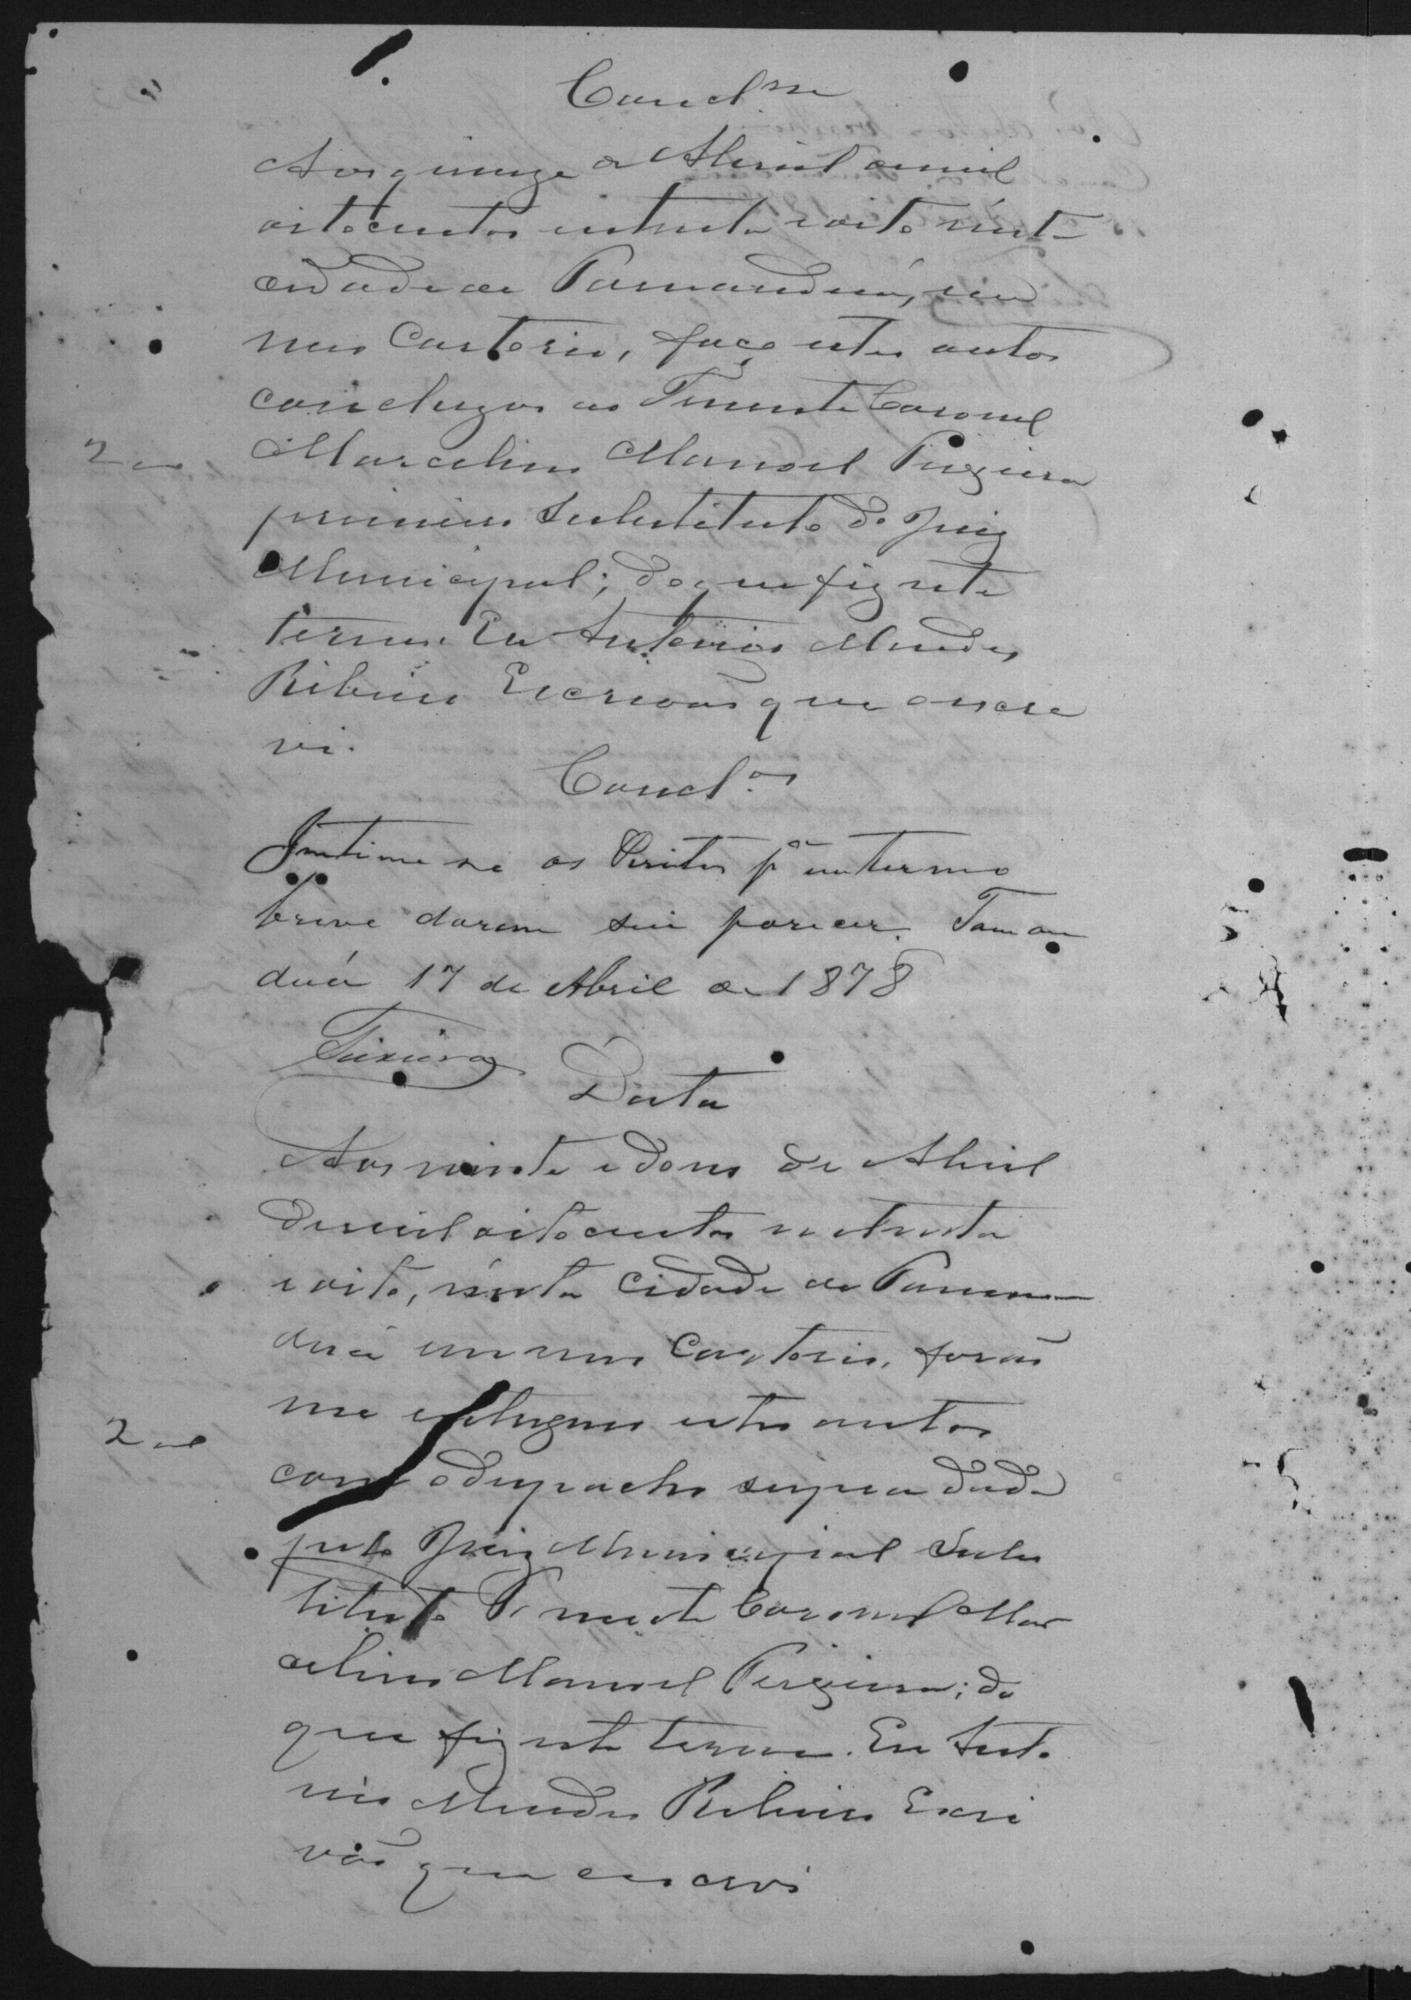 Concl.m
Aos quinze de Abril de mil
oitocentos e setenta e oito nesta
cidade de Tamanduá, em
meu Cartorio, faço estes autos
concluzos ao Tenente Coronel
Marcelino Manoel
primeiro Substituto do Juiz
Municipal; do que fiz este
termo. Eu Antonio Mendes
Ribeiro Escrivaõ que o escre
vi.
Concl.os
Intime se os Peritos pª em termo
breve darem seu parecer. Taman
duá 17 de Abril de 1878
Data
Aos vinte e dous de Abril
de mil oitocentos e setenta
e oito, nesta cidade de Taman
duá em meu Cartorio, foraõ
me entregues estes autos
com o despacho supra dado
pelo Juiz Municipal Subs
tituto Tenente Coronel Mar
celino Manoel; do
que fiz este termo. Eu Anto
nio Mendes Ribeiro Escri
vaõ que escrevi